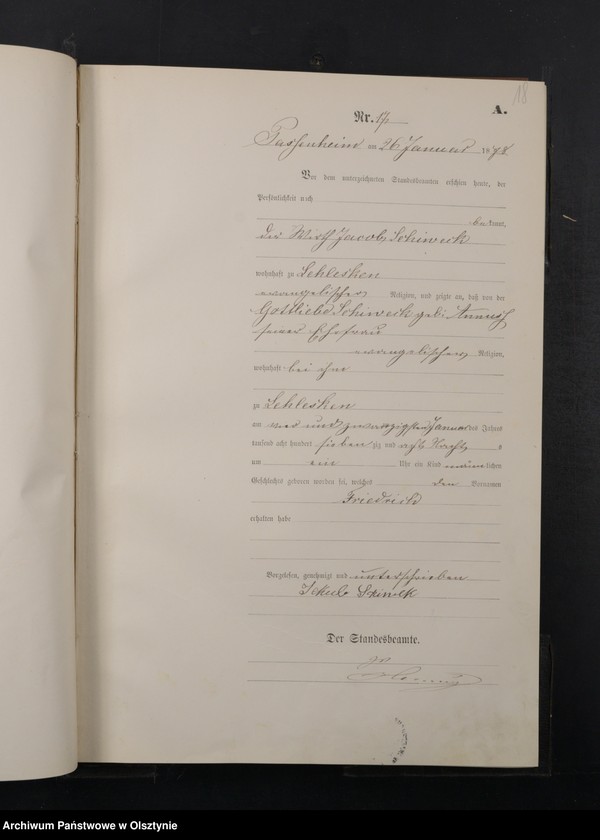 18
A.
Nr. 17
Passenheim am 26 Januar 1878
Vor dem unterzeichneten Standesbeamten erschien heute, der
Persönlichkeit nach
bekannt,
der Wirth Jacob Schiweck
wohnhaft zu Schlesken
evangelischer Religion, und zeigte an, daß von der
Gottliebe Schiweck geb: Annuss
seiner Ehefrau
evangelischer Religion,
wohnhaft bei ihm
zu Schlesken
am und zwanzigsten Januar des Jahres
tausend acht hundert siebenzig und acht Nachts
um ein Uhr ein Kind männlichen
Geschlechts geboren worden sei, welches den Vornamen
Friedrich
erhalten habe
Vorgelesen, genehmigt und unterschrieben
Der Standesbeamte.
Archiwum Państwowe w Olsztynie